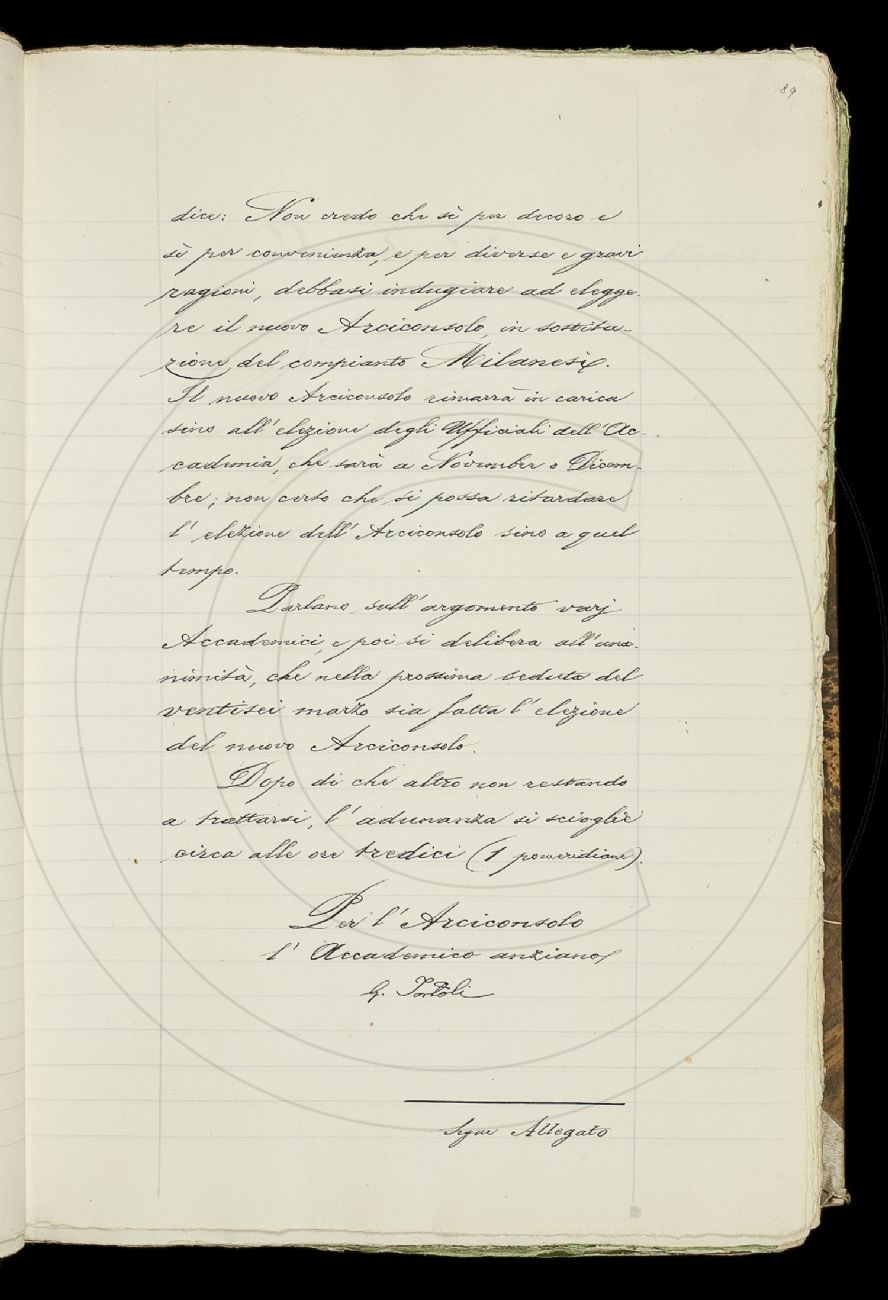 89
dice: Non credo che sì per decoro e
sì per convenienza, e per diverse e gravi
ragioni, debbasi indugiare ad elegge-
re il nuovo Arciconsolo, in sostitu-
zione del compianto Milanesi.
Il nuovo Arciconsolo rimarrà in carica
sino all'elezione degli Ufficiali dell'Ac-
cademia, che sarà a Novembre o Dicem-
bre; non certo che si possa ritardare
l'elezione dell'Arciconsolo sino a quel
tempo.
Parlano sull'argomento varj
Accademici, e poi si delibera all'una-
nimità, che nella prossima seduta del
ventisei marzo sia fatta l'elezione
del nuovo Arciconsolo.
Dopo di che altro non restando
a trattarsi, l'adunanza si scioglie
circa alle ore tredici (1 pomeridiane).
Per l'Arciconsolo
l'Accademico anziano
G. Tortoli
Segue Allegato